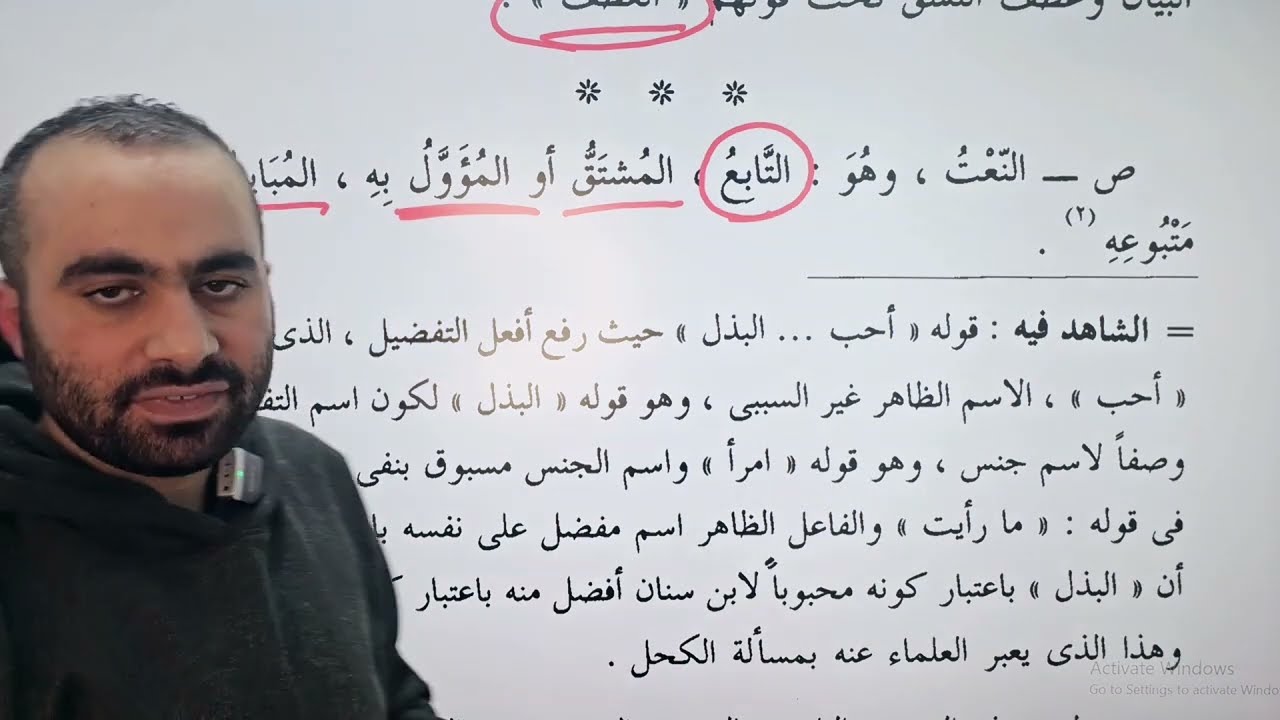 البيان وعطف النسق تحت قولهم « العطف » .
* * *
ص ــ النّعْتُ ، وهُوَ : التَّابِعُ ، المُشتَقُّ أو المُؤَوَّلُ بِهِ ،
مَتْبُوعِهِ (٢) .
= الشاهد فيه : قوله « أحب ... البذل » حيث رفع أفعل التفضيل ، الذى
« أحب » ، الاسم الظاهر غير السببى ، وهو قوله « البذل » لكون اسم
وصفاً لاسم جنس ، وهو قوله « امرأ » واسم الجنس مسبوق بنفى
فى قوله : « ما رأيت » والفاعل الظاهر اسم مفضل على نفسه
أن « البذل » باعتبار كونه محبوباً لابن سنان أفضل منه باعتبار
وهذا الذى يعبر العلماء عنه بمسألة الكحل .
Activate Windows
Go to Settings to activate Windo